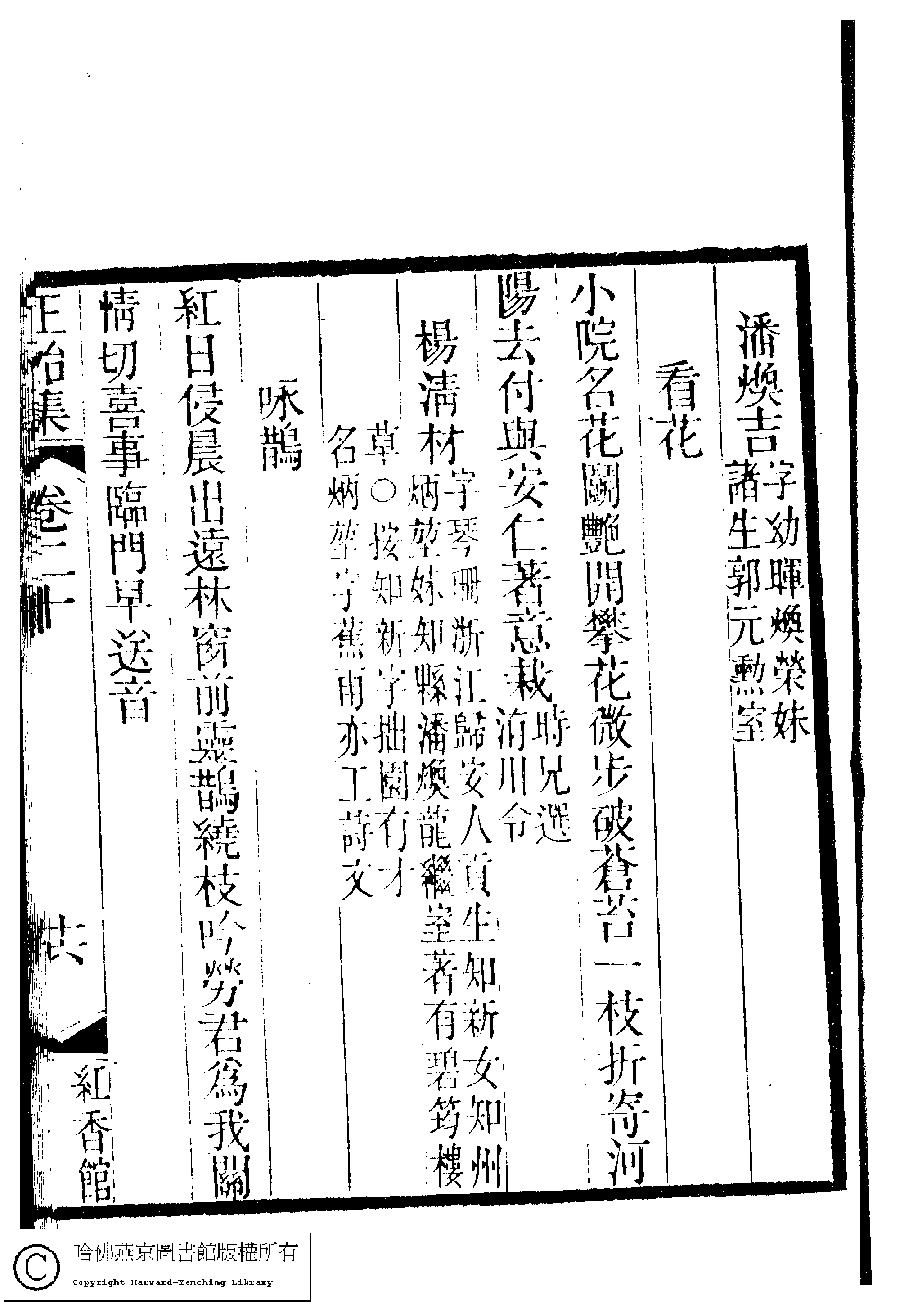 潘煥吉 字幼暉煥榮妹
諸生郭元勲室
看花
小院名花鬭艷開攀花微步破蒼苔一枝折寄河
陽去付與安仁著意栽 時兄選
洧川令
楊淸材 字琴珊浙江歸安人貢生知新女知州
炳堃妹知縣潘煥龍繼室著有碧筠樓
草○按知新字拙園有才
名炳堃字蕉雨亦工詩文
咏鵲
紅日侵晨出遠林窗前靈鵲繞枝吟勞君爲我關
情切喜事臨門早送音
正始集 卷二十
紅香館
哈佛燕京圖書館版權所有
Copyright Harvard-Yenching Library